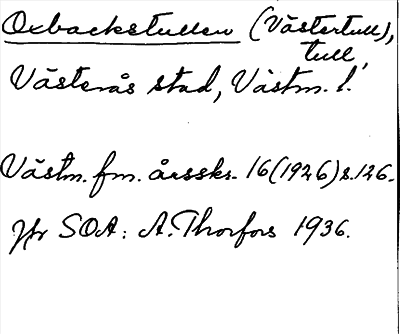 Oxbackstullen (Västertull),
tull,
Västerås stad, Västm. l.
Västm. fm. årsskr. 16(1926)s.126.
Jfr SOA: A. Thorfors 1936.